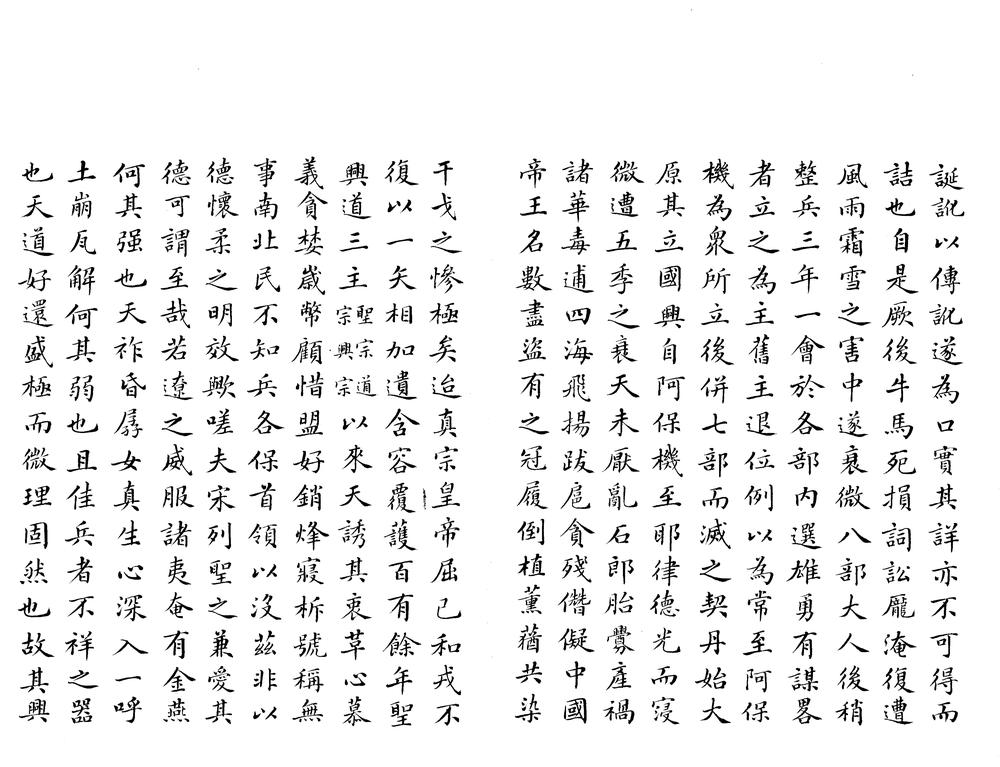 誕訛以傳訛遂為口實其詳亦不可得而
詰也自是厥後牛馬死損詞訟厖淹復遭
風雨霜雪之害中遂衰微八部大人後稍
整兵三年一會於各部内選雄勇有謀畧
者立之為主舊主退位例以為常至阿保
機為衆所立後併七部而滅之契丹始大
原其立國興自阿保機至耶律德光而寖
微遭五季之衰天未厭亂石郎胎釁產禍
諸華毒逋四海飛揚跋扈貪殘僭儗中國
帝王名數盡盜有之冠履倒植薰蕕共染
干戈之慘極矣迨真宗皇帝屈已和戎不
復以一矢相加遺含容覆護百有餘年聖
興道三主聖宗興宗道宗以來天誘其衷草心慕
義貪婪嵗幣顧惜盟好銷烽寢柝號稱無
事南北民不知兵各保首領以沒茲非以
德懷柔之明效歟嗟夫宋列聖之兼愛其
德可謂至哉若遼之威服諸夷奄有金燕
何其强也天祚昏孱女真生心深入一呼
土崩瓦解何其弱也且佳兵者不祥之器
也天道好還盛極而微理固然也故其興